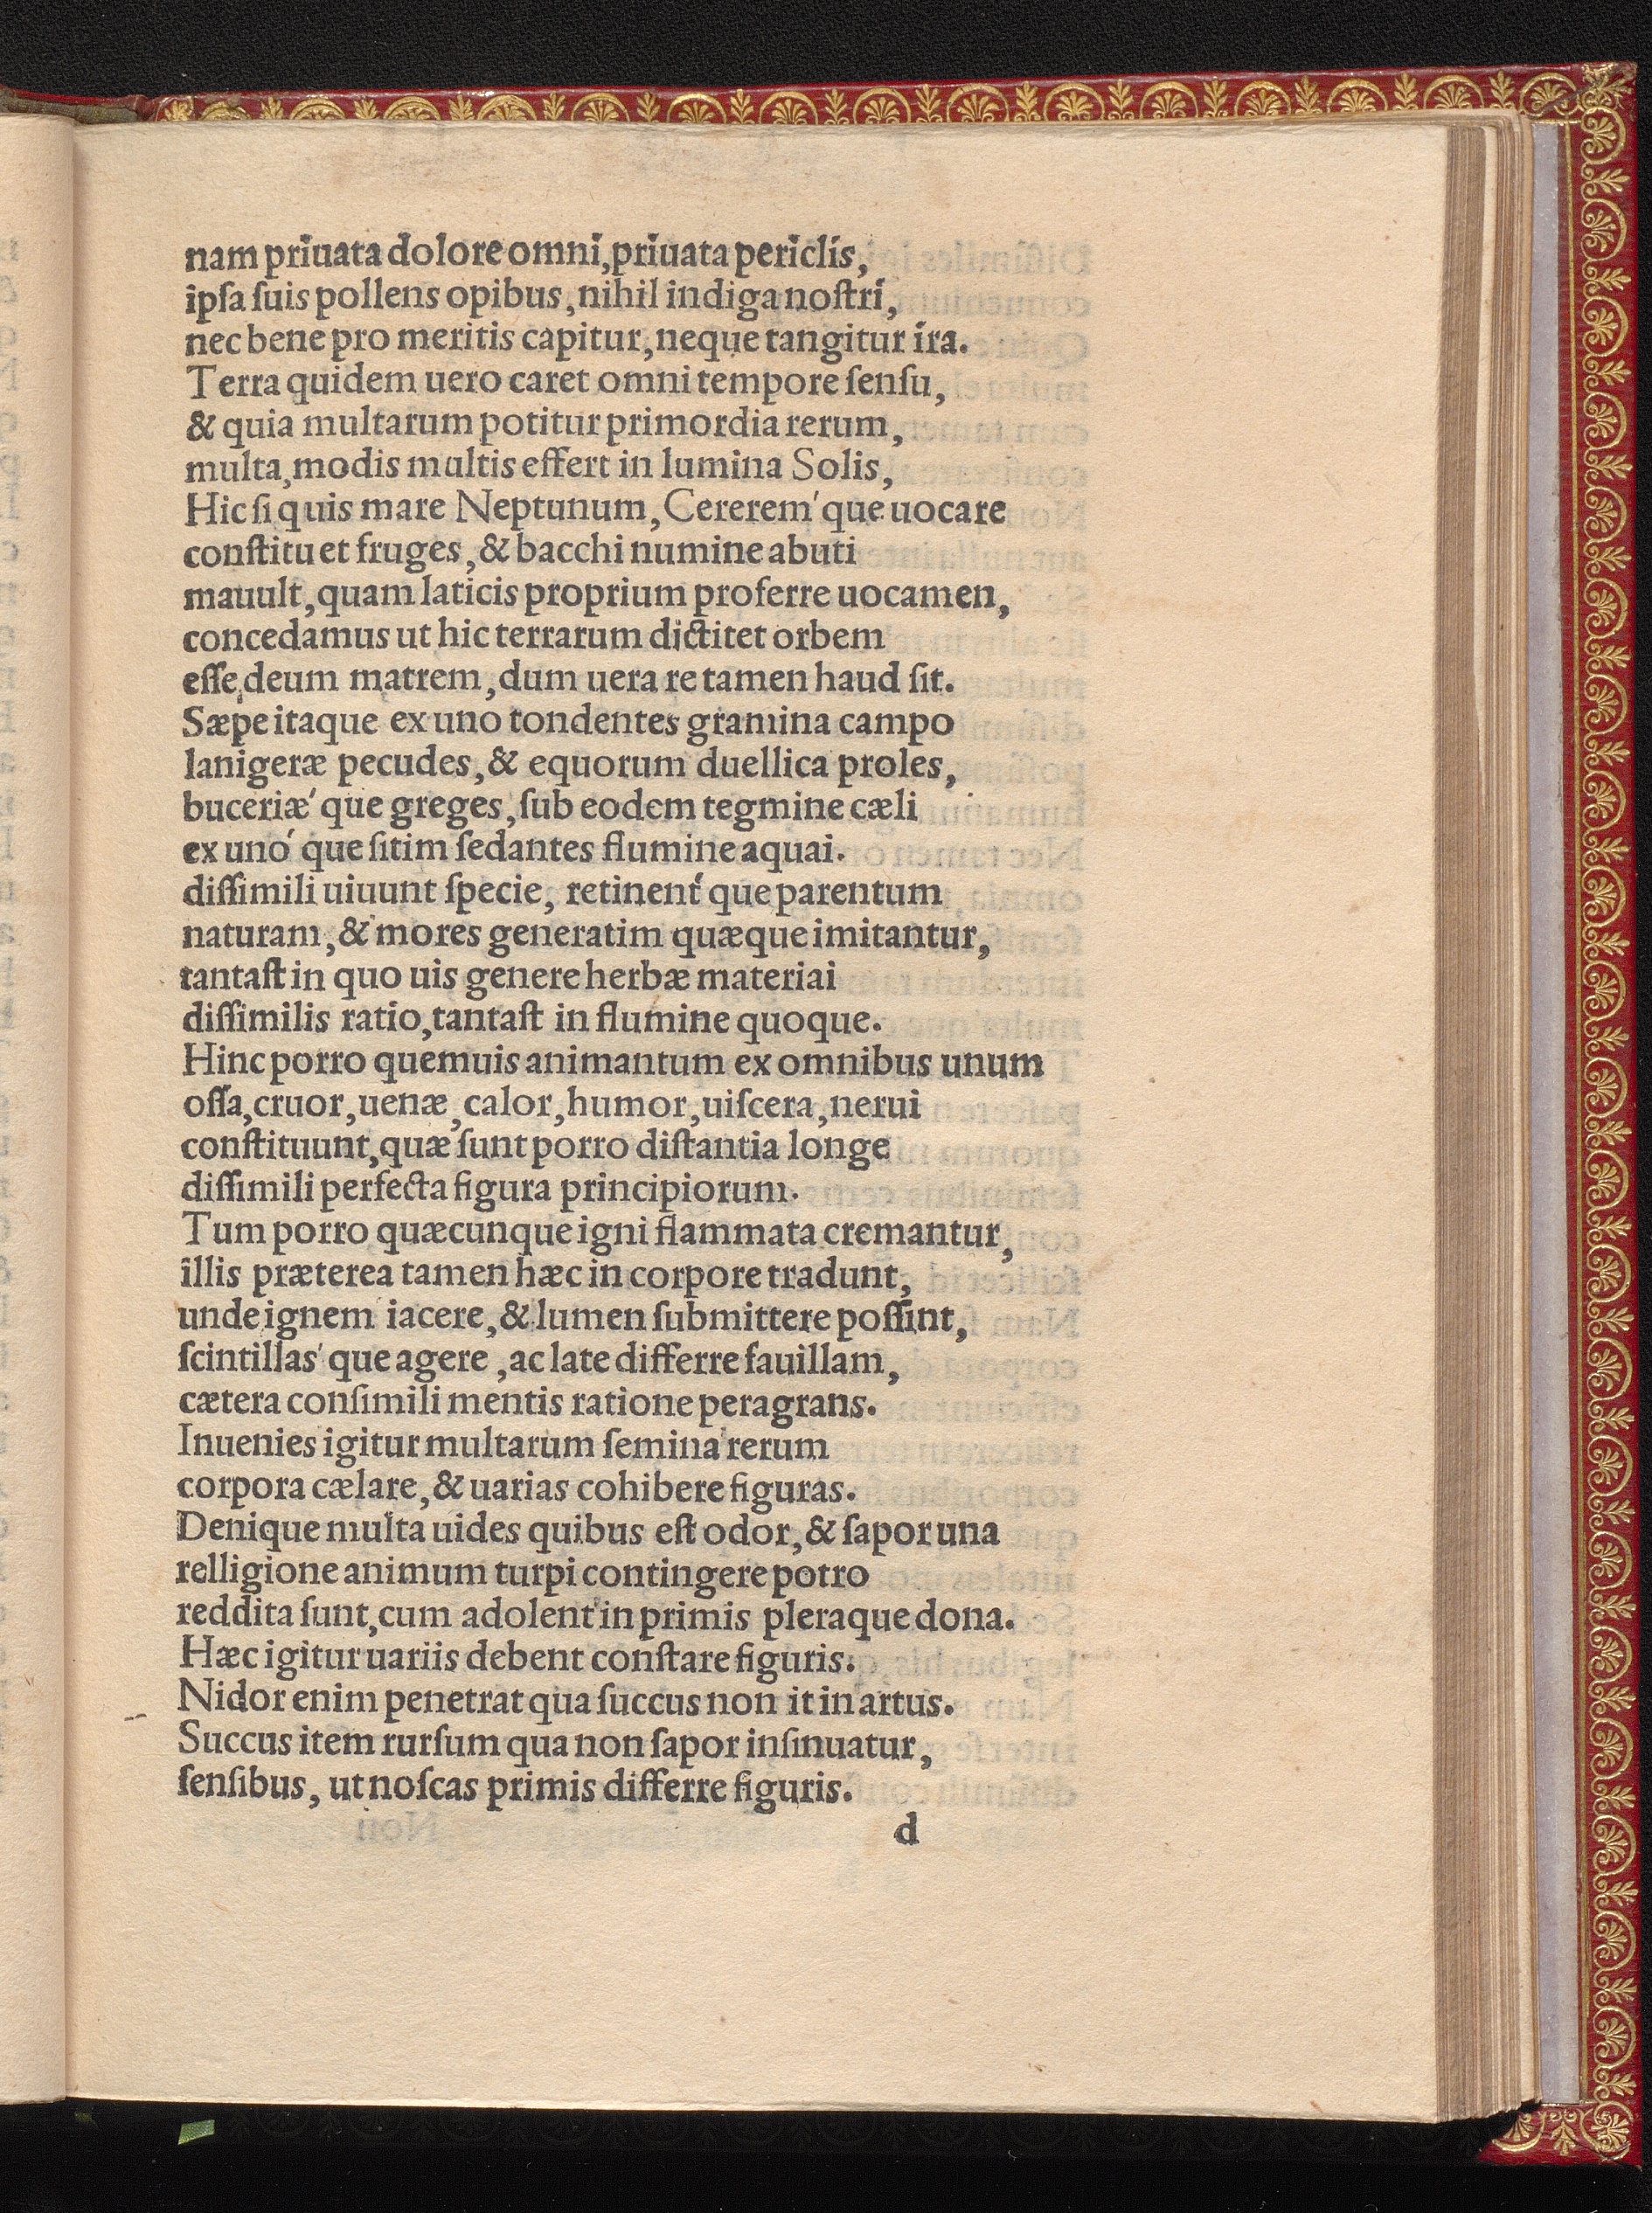 nam priuata dolore omni, priuata periclis,
ipſa ſuis pollens opibus, nihil indiga noſtri,
nec bene pro meritis capitur, neque tangitur ira.
Terra quidem uero caret omni tempore ſenſu,
& quia multarum potitur primordia rerum,
multa, modis multis effert in lumina Solis,
Hic ſi quis mare Neptunum, Cererem' que uocare
conſtituet fruges, & bacchi numine abuti
mauult, quam laticis proprium proferre uocamen,
concedamus ut hic terrarum dictitet orbem
eſſe deum matrem, dum uera re tamen haud ſit.
Sæpe itaque ex uno tondentes gramina campo
lanigeræ pecudes, & equorum duellica proles,
buceriæ' que greges, ſub eodem tegmine cæli
ex uno' que ſitim ſedantes flumine aquai.
diſſimili uiuunt ſpecie, retinent' que parentum
naturam, & mores generatim quæque imitantur,
tantaſt in quo uis genere herbæ materiai
diſſimilis ratio, tantaſt in flumine quoque.
Hinc porro quemuis animantum ex omnibus unum
oſſa, cruor, uenæ, calor, humor, uiſcera, nerui
conſtituunt, quæ ſunt porro diſtantia longe
diſſimili perfecta figura principiorum.
Tum porro quæcunque igni flammata cremantur,
illis præterea tamen hæc in corpore tradunt,
unde ignem iacere, & lumen ſubmittere poſſint,
ſcintillas' que agere, ac late differre fauillam,
cætera conſimili mentis ratione peragrans.
Inuenies igitur multarum ſemina rerum
corpora cælare, & uarias cohibere figuras.
Denique multa uides quibus eſt odor, & ſapor una
relligione animum turpi contingere potro
reddita ſunt, cum adolent in primis pleraque dona.
Hæc igitur uariis debent conſtare figuris.
Nidor enim penetrat qua ſuccus non it in artus.
Succus item rurſum qua non ſapor inſinuatur,
ſenſibus, ut noſcas primis differre figuris.
d